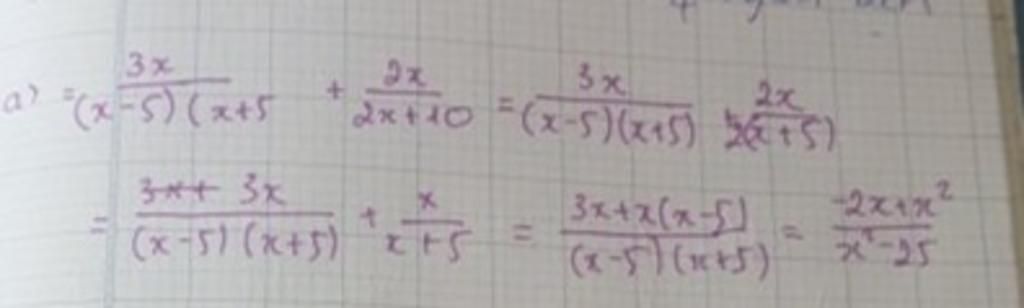 a) = 3x/(x-5)(x+5 + 2x/2x+10 = 3x/(x-5)(x+5) 2x/2(x+5)
= 3x+ 3x/(x-5)(x+5) + x/x+5 = 3x+x(x-5)/(x-5)(x+5) = -2x+x²/x²-25